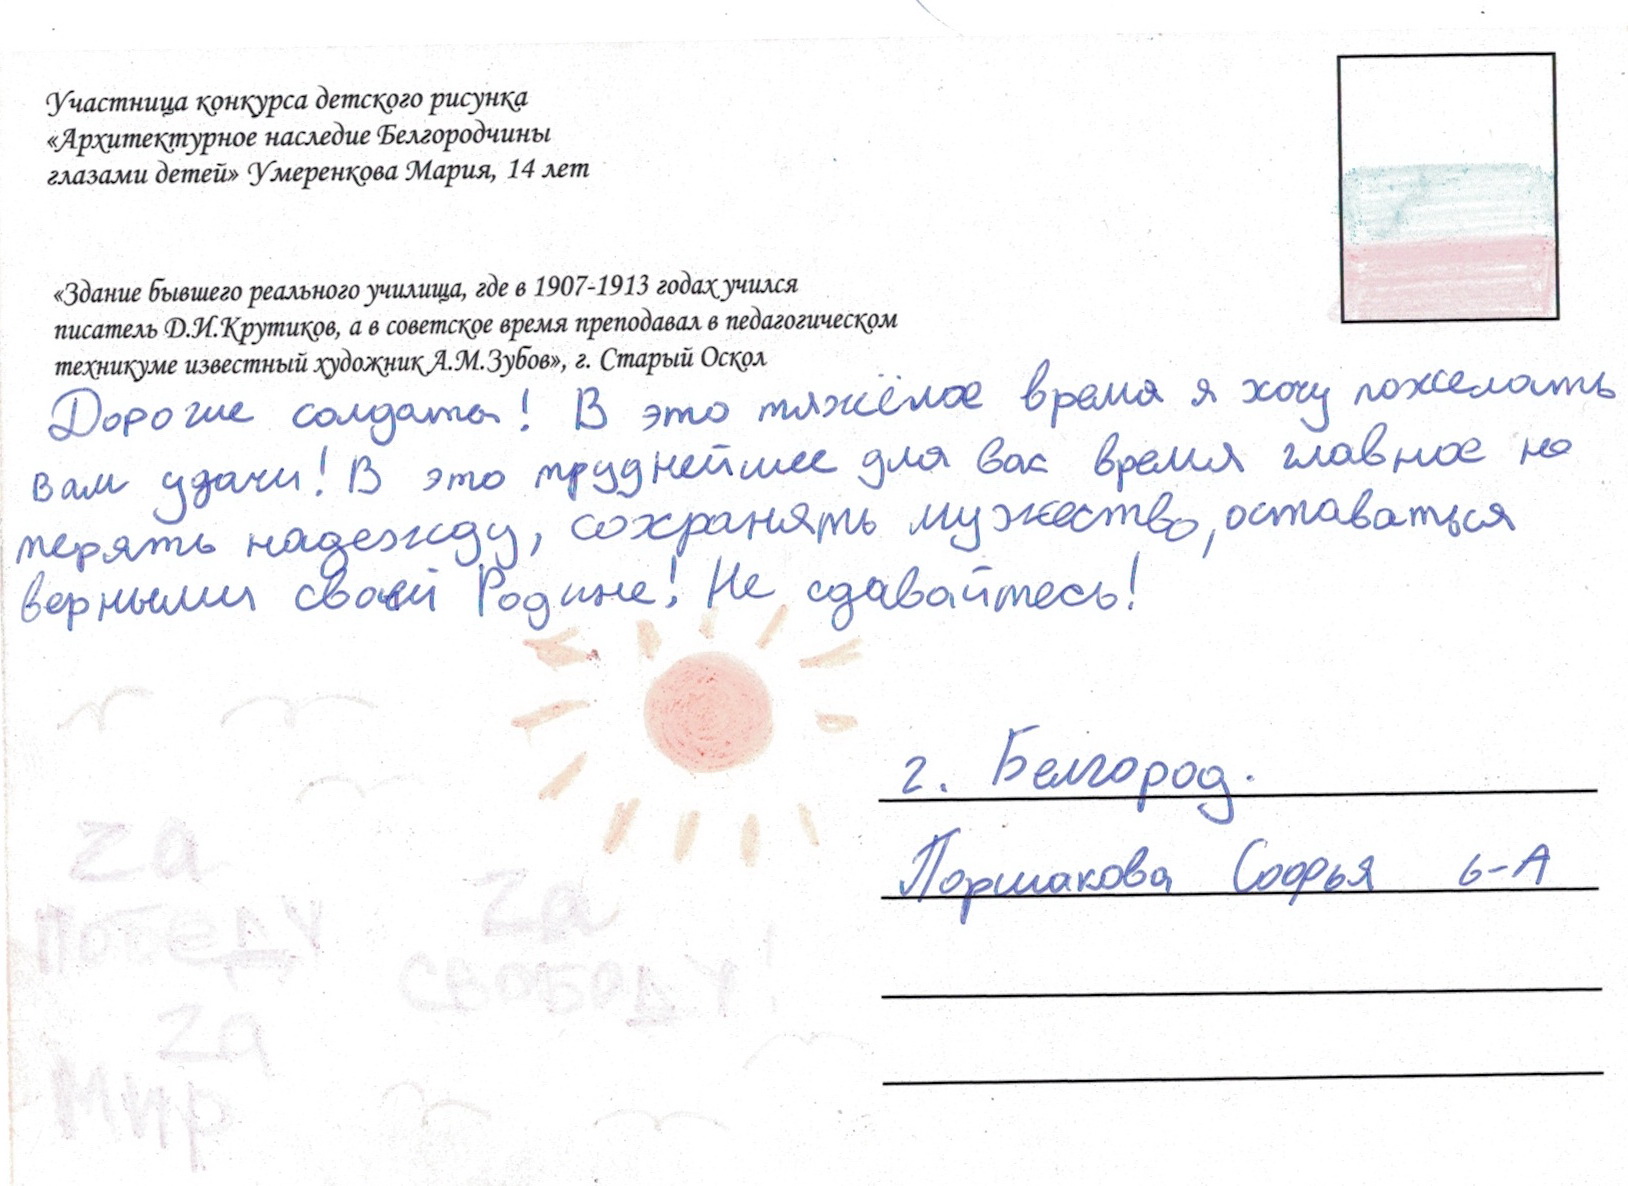 Участница конкурса детского рисунка
«Архитектурное наследие Белгородчины
глазами детей» Умеренкова Мария, 14 лет
«Здание бывшего реального училища, где в 1907-1913 годах учился
писатель Д.И.Крутиков, а в советское время преподавал в педагогическом
техникуме известный художник А.М.Зубов», г. Старый Оскол
Дорогие солдаты! В это тяжёлое время я хочу пожелать
вам удачи! В это труднейшее для вас время главное не
терять надежду, сохранять мужество, оставаться
верными своей Родине! Не сдавайтесь!
г. Белгород.
Поршакова Софья 6-А
Zа
ПОБЕДУ
Zа
СВОБОДУ!
Zа
Мир